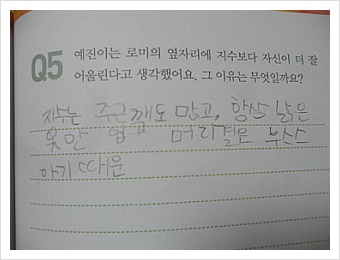 Q5 예진이는 로미의 옆자리에 지수보다 자신이 더 잘
어울린다고 생각했어요. 그 이유는 무엇일까요?
지수는 주근깨도 많고, 항상 낡은
옷만 입 머리결은 부스스
하기 때문